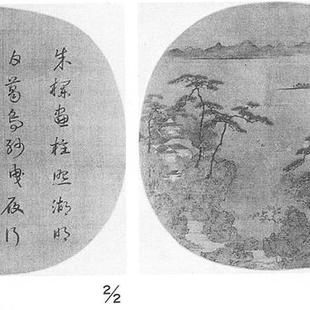 朱欄畫柱照湖明
白葛烏紗曳履行
2/2